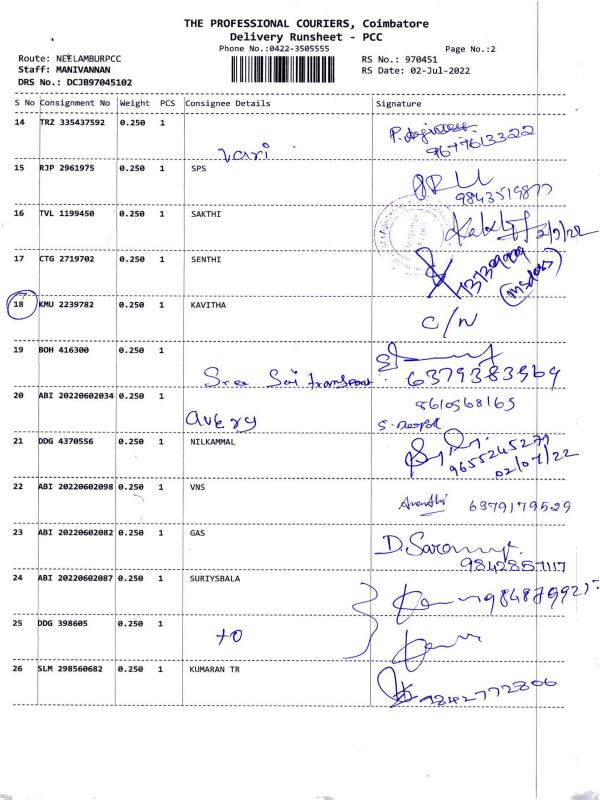 THE PROFESSIONAL COURIERS, Coimbatore
Delivery Runsheet - PCC
Phone No.:0422-3505555
Page No.:2
Route: NEELAMBURPCC
Staff: MANIVANNAN
DRS No.: DCJB97045102
RS No.: 970451
RS Date: 02-Jul-2022
S No Consignment No Weight PCS Consignee Details Signature
14 TRZ 335437592 0.250 1
vari
15 RJP 2961975 0.250 1 SPS
16 TVL 1199450 0.250 1 SAKTHI
17 CTG 2719702 0.250 1 SENTHI
18 KMU 2239782 0.250 1 KAVITHA C/N
19 BOH 416300 0.250 1
Sree Sai transport 6379383569
20 ABI 20220602034 0.250 1 8610568165
avery S. Deepak
21 DDG 4370556 0.250 1 NILKAMMAL
9655245279
02/07/22
22 ABI 20220602098 0.250 1 VNS
Ananthi 6379179529
23 ABI 20220602082 0.250 1 GAS
9842857117
24 ABI 20220602087 0.250 1 SURIYSBALA
25 DDG 398605 0.250 1
to
26 SLM 298560682 0.250 1 KUMARAN TR